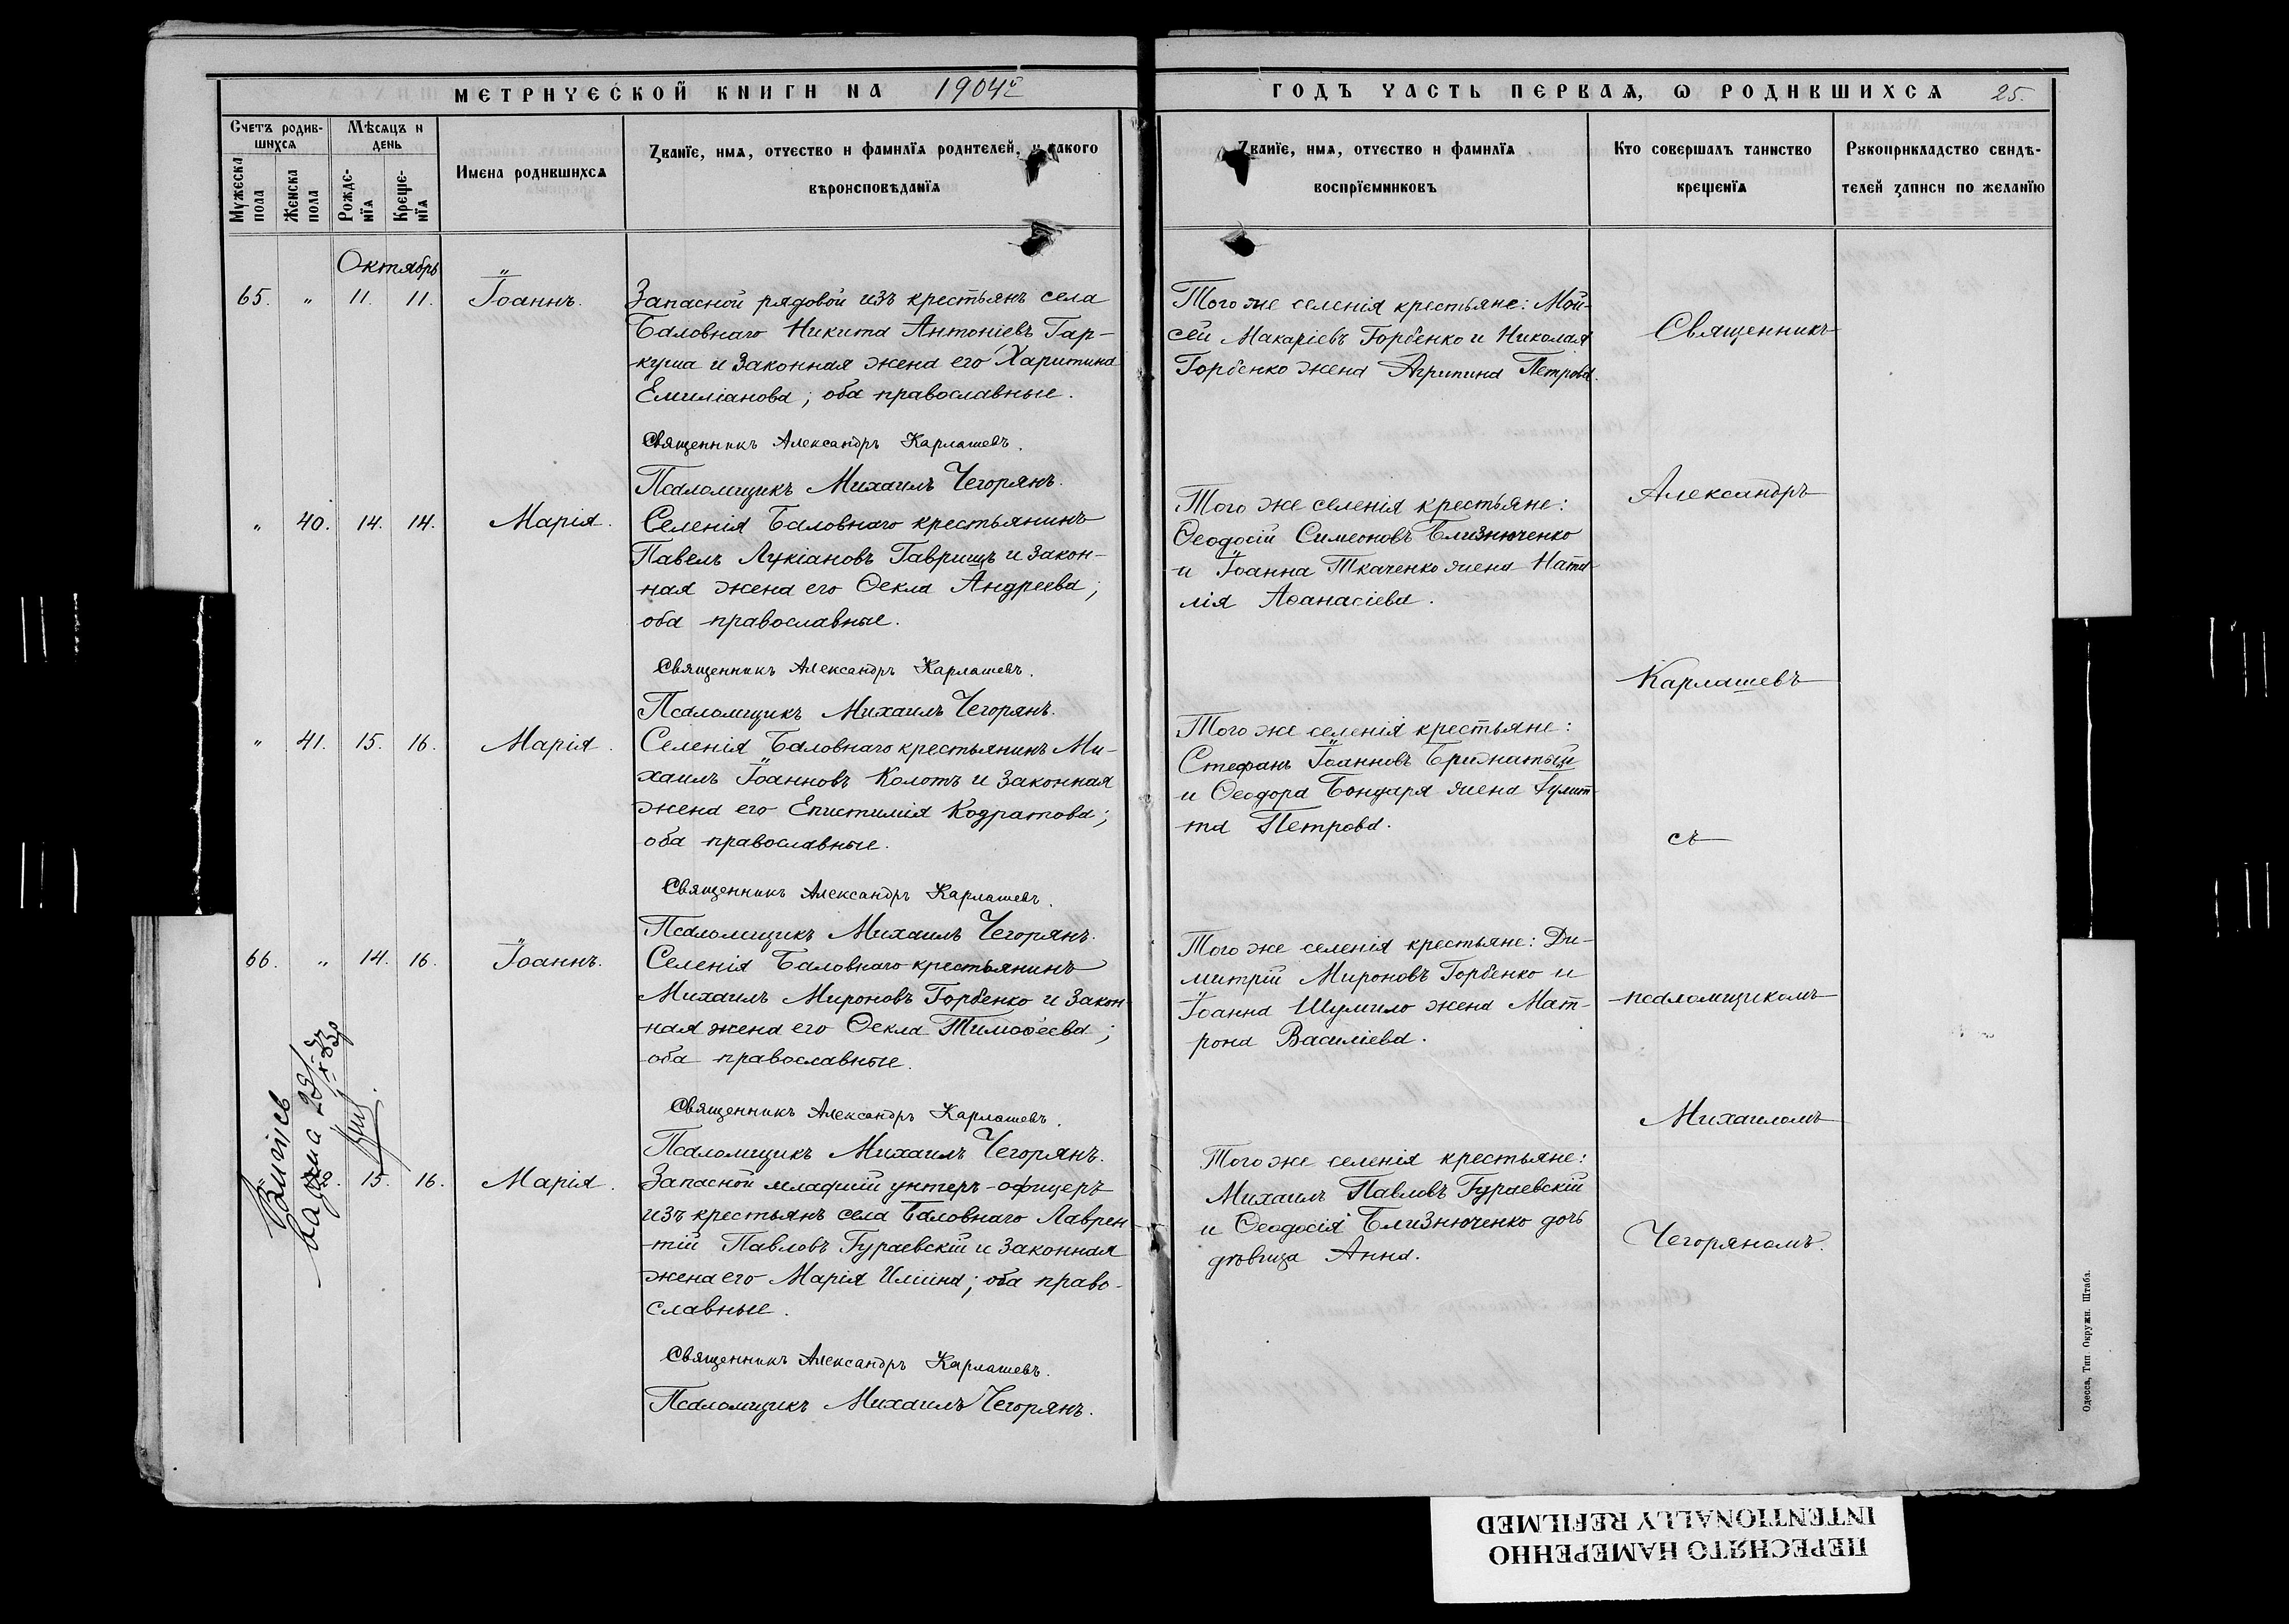 МЕТРИЧЕСКОЙ КНИГИ НА 1904й
ГОДЪ ЧАСТЬ ПЕРВАѦ, Ѡ РОДИВШИХСѦ 25.
Счетъ родив-
шихсѧ
Мѣсѧцъ и
день
Мужеска
пола
Женска
пола
Рожде-
нїѧ
Креще-
нїѧ
Имена родившихсѧ
Званїе, имѧ, отчество и фамилїѧ родителей, и какого
вѣроисповѣданїѧ
Званїе, имѧ, отчество и фамилїѧ
воспрїемниковъ
Кто совершалъ таинство
крещенїѧ
Рукоприкладство свидѣ-
телей записи по желанїю
Октябрь
65. " 11. 11. Іоаннъ.
Запасной рядовой изъ крестьянъ села
Баловнаго Никита Антоніевъ Гар-
-куша и законная жена его Харитина
Емиліанова; оба православные.
Священникъ Александръ Карлашевъ.
Псаломщикъ Михаилъ Чегорянъ.
Того же селенія крестьяне: Мой-
сей Макаріевъ Горбенко и Николая
Горбенко жена Агрипина Петрова.
" 40. 14. 14. Марія.
Селенія Баловнаго крестьянинъ
Павелъ Лукіановъ Гаврищъ и закон-
ная жена его Ѳекла Андреева;
оба православные.
Священникъ Александръ Карлашевъ.
Псаломщикъ Михаилъ Чегорянъ.
Того же селенія крестьяне:
Ѳеодосій Симеоновъ Близнюченко
и Іоанна Ткаченко жена Ната-
лія Аѳанасіева.
" 41. 15. 16. Марія.
Селенія Баловнаго крестьянинъ Ми-
хаилъ Іоанновъ Колотъ и законная
жена его Епистимія Кодратова;
оба православные.
Священникъ Александръ Карлашевъ.
Псаломщикъ Михаилъ Чегорянъ.
Того же селенія крестьяне:
Стефанъ Іоанновъ
и Ѳеодора Бондаря жена
та Петрова.
66. " 14. 16. Іоаннъ.
Селенія Баловнаго крестьянинъ
Михаилъ Мироновъ Горбенко и закон-
ная жена его Ѳекла Тимоѳеева;
оба православные.
Священникъ Александръ Карлашевъ.
Псаломщикъ Михаилъ Чегорянъ.
Того же селенія крестьяне: Ди-
митрій Мироновъ Горбенко и
Іоанна Шумило жена Мат-
рона Василіева.
15. 16. Марія.
Запасной младшій унтеръ-офицеръ
изъ крестьянъ села Баловнаго Лаврен-
-тій Павловъ Гураевскій и законная
жена его Марія Иліина; оба право-
славные.
Священникъ Александръ Карлашевъ.
Псаломщикъ Михаилъ Чегорянъ.
Того же селенія крестьяне:
Михаилъ Павловъ Гураевскій
и Ѳеодосія Близнюченко дочь
дѣвица Анна.
Священникъ
Александръ
Карлашевъ
съ
псаломщикомъ
Михаиломъ
Чегоряномъ.
Одесса, Тип Окружн. Штаба.
ПЕРЕСНЯТО НАМЕРЕННО
INTENTIONALLY REFILMED